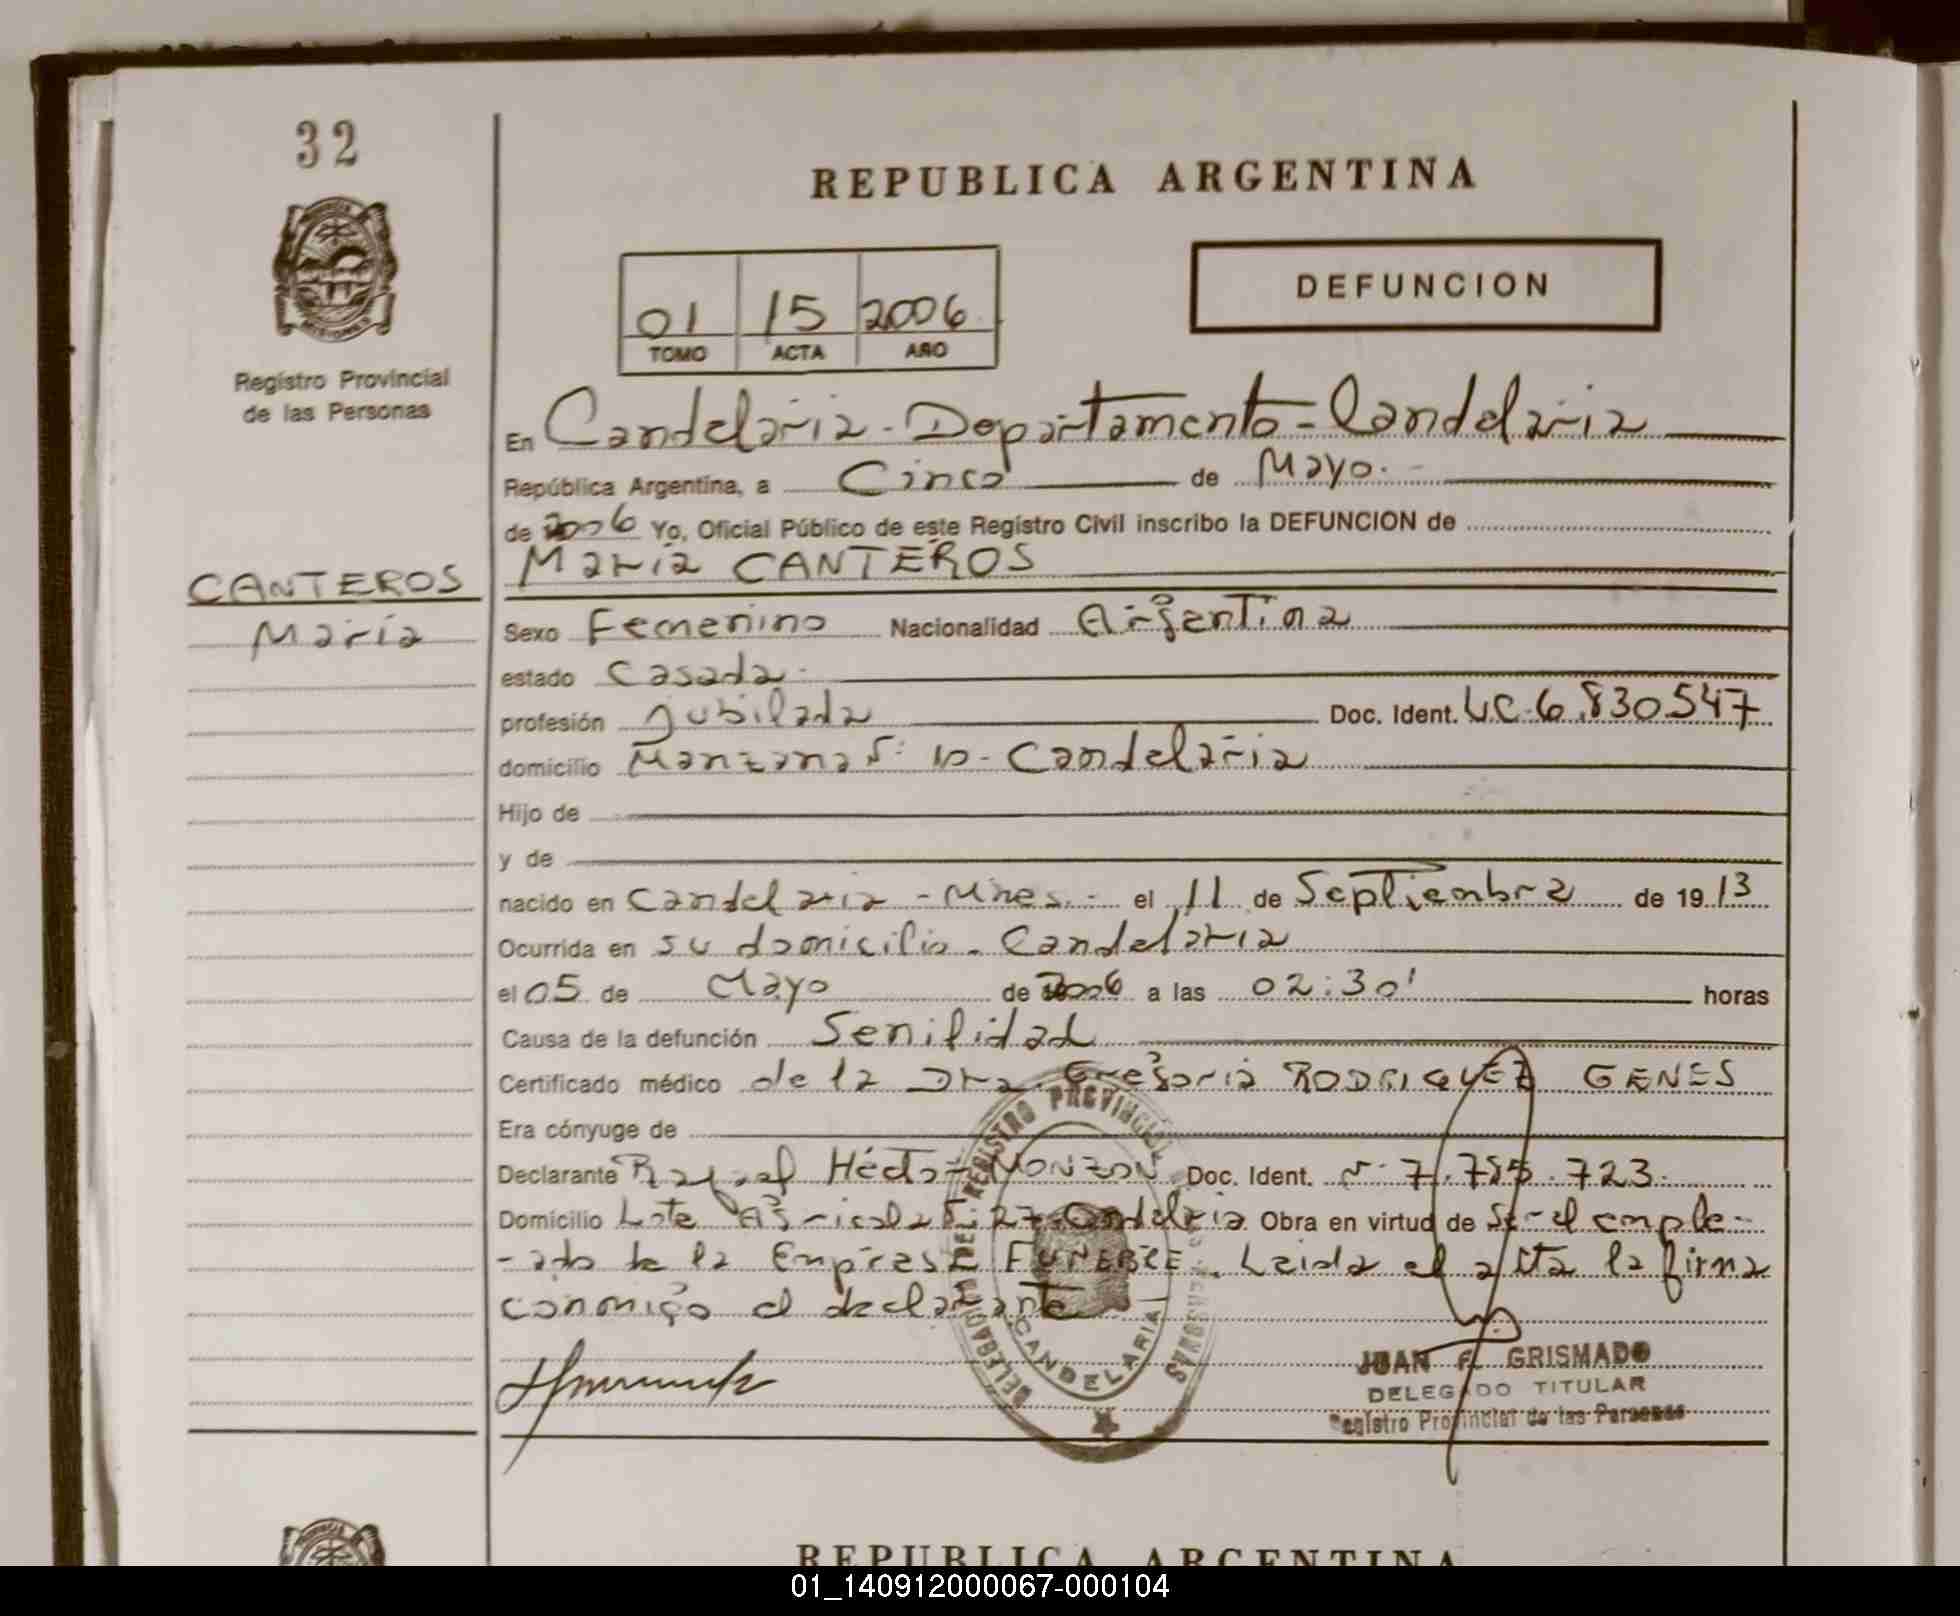 32
REPUBLICA ARGENTINA
DEFUNCION
01 15 2006
TOMO ACTA AÑO
Registro Provincial
de las Personas
En Candelaria - Departamento - Candelaria
República Argentina, a Cinco de Mayo.-
de 2006 Yo, Oficial Público de este Registro Civil inscribo la DEFUNCION de
María CANTEROS
CANTEROS
María
Sexo Femenino Nacionalidad Argentina
estado Casada.
profesión jubilada Doc. Ident. LC.6.830.547
domicilio Manzana - Candelaria
Hijo de
y de
nacido en Candelaria - Mnes.- el 11 de Septiembre de 1913
Ocurrida en su domicilio - Candelaria
el 05 de Mayo de 2006 a las 02:30' horas
Causa de la defunción Senilidad
Certificado médico de la Dra. Gregoria RODRIGUEZ GENES
Era cónyuge de
Declarante Rafael Héctor MONZON Doc. Ident. 7.785.723.
Domicilio Lote Agricola 27 Candelaria. Obra en virtud de Ser el emple-
-ado de la Empresa FUNEBRE. Leida el acta la firma
conmigo el declarante
DELEGACION DEL REGISTRO PROVINCIAL DE LAS PERSONAS
CANDELARIA
JUAN F. GRISMADO
DELEGADO TITULAR
Registro Provincial de las Personas
REPUBLICA ARGENTINA
01_140912000067-000104